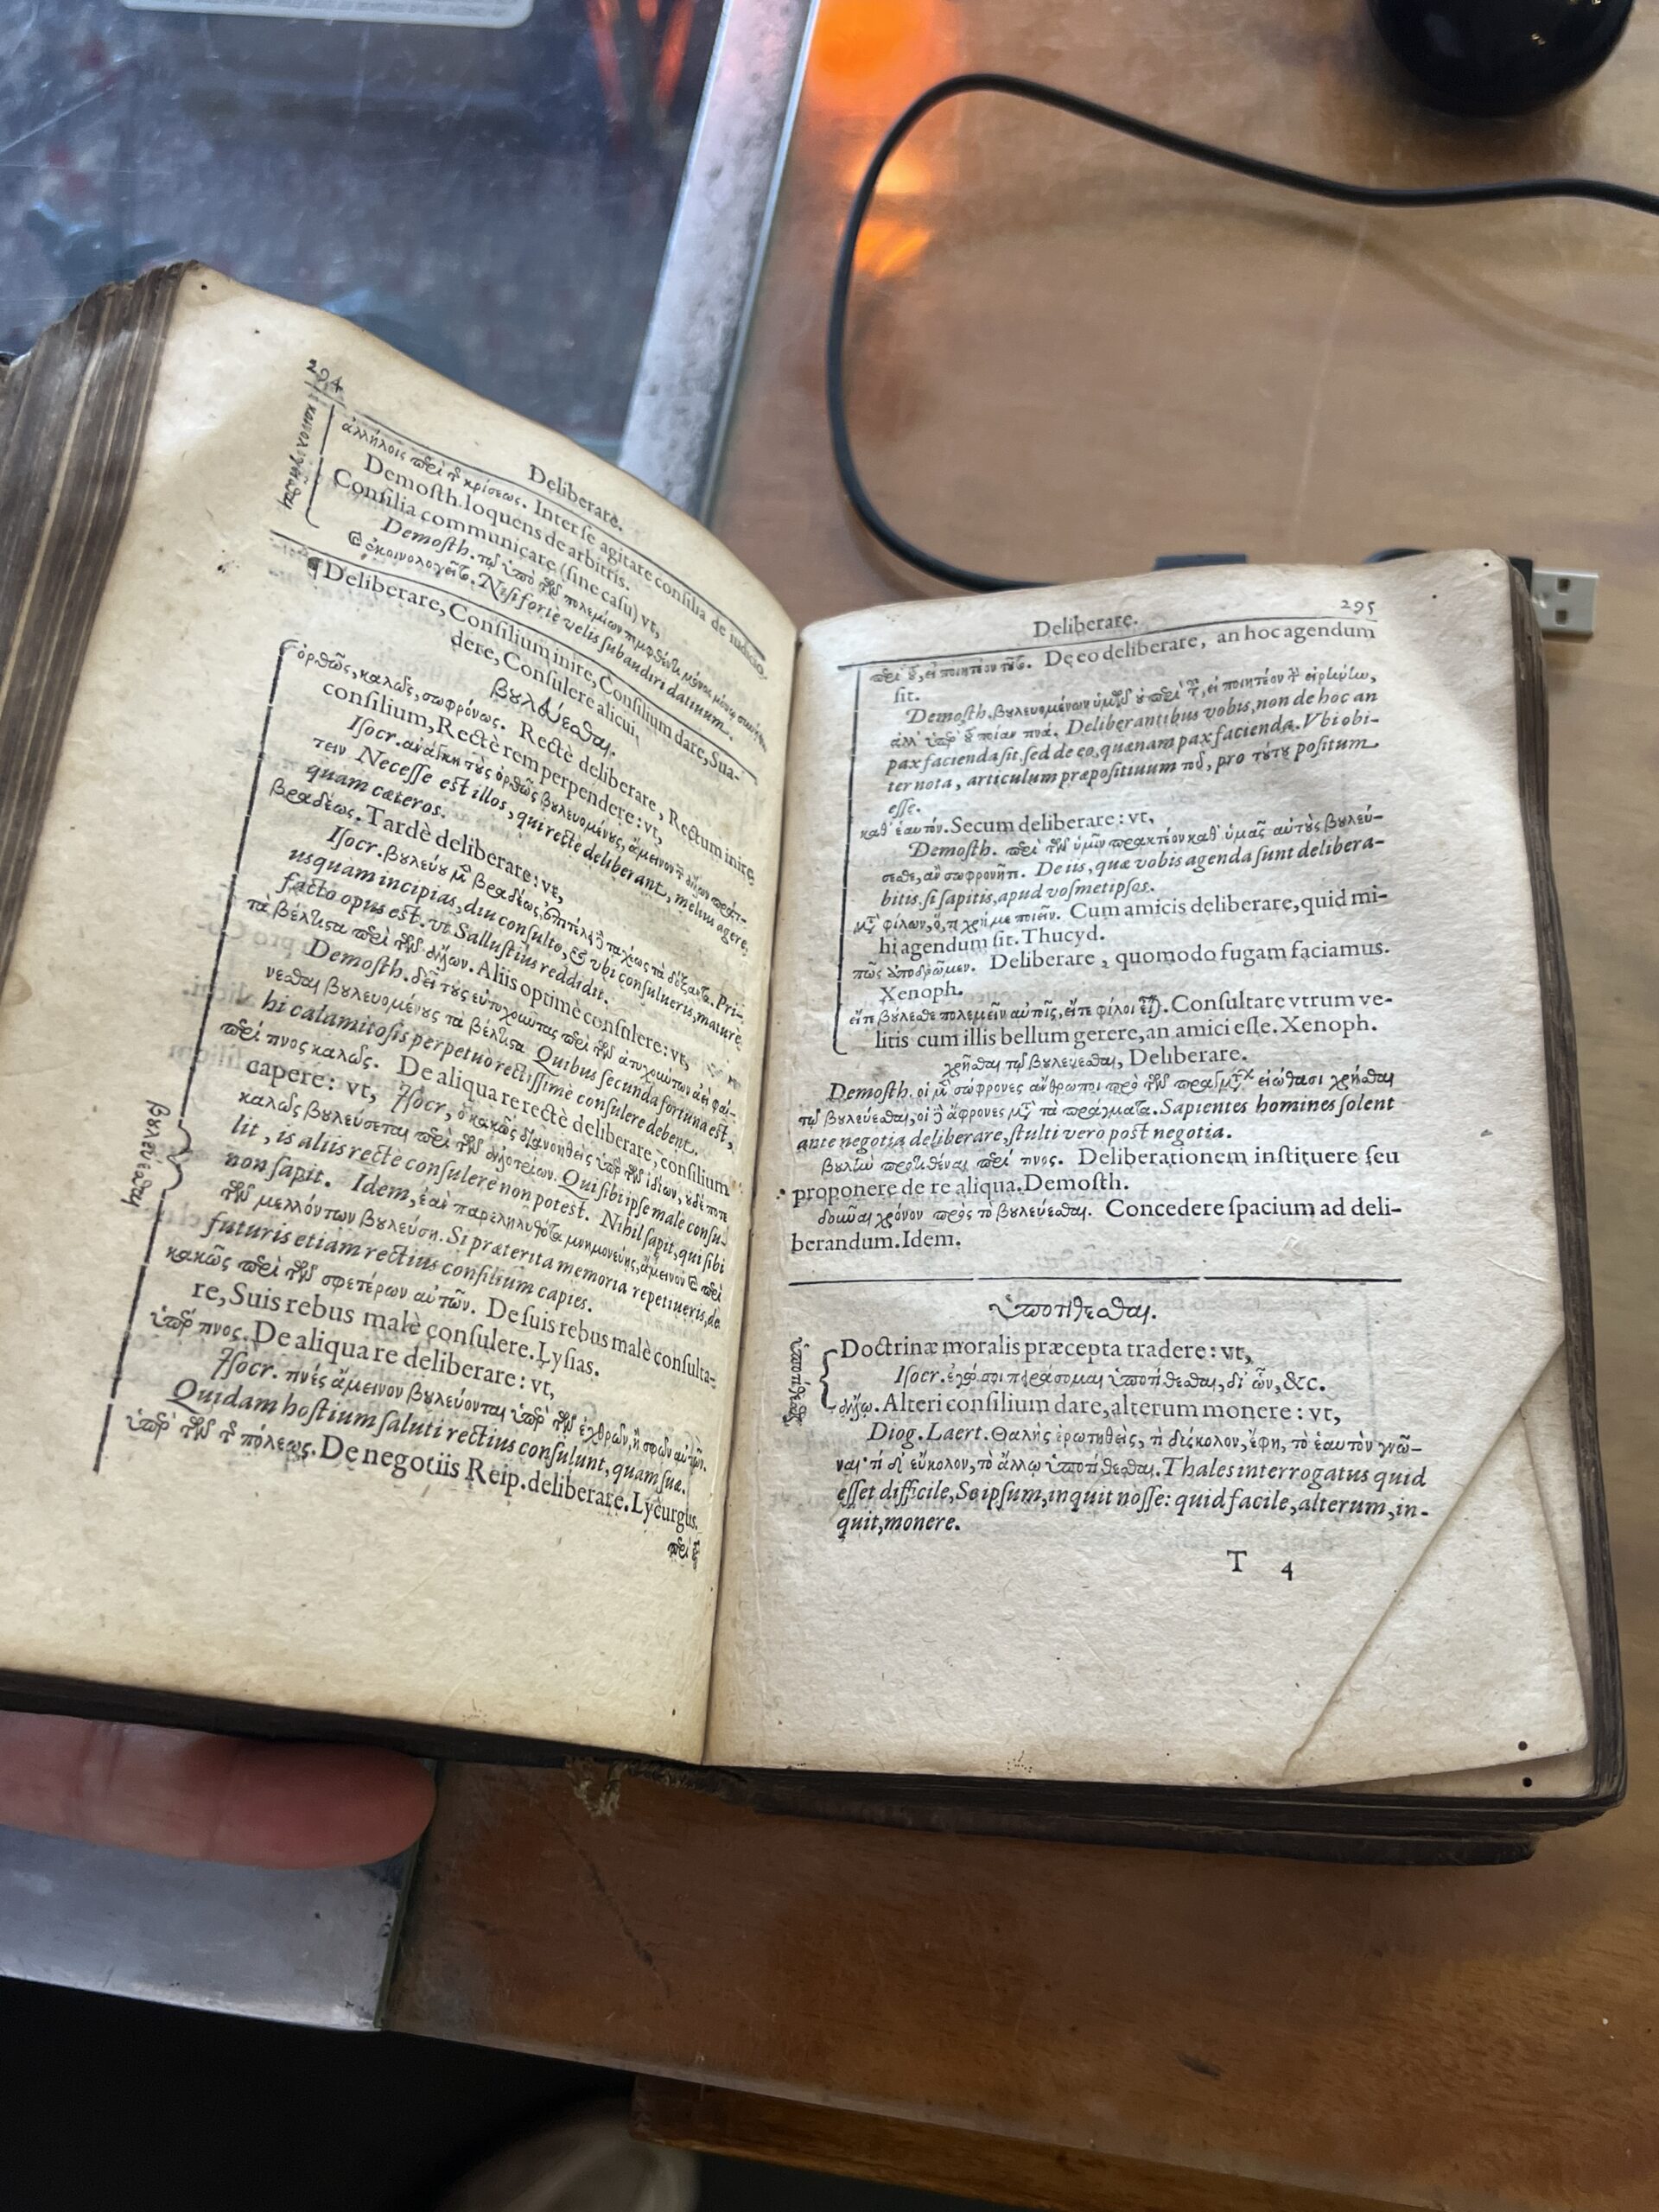 294
Deliberare.
κοινολογεῖσθαι
ἀλλήλοις περὶ τῆς κρίσεως. Inter se agitare consilia de iudicio.
Demosth. loquens de arbitris.
Consilia communicare (sine casu) vt,
Demosth. τῷ ὑπὸ τῶν πολεμίων πεμφθέντι μόνος μόνῳ
ἐκοινολογεῖτο. Nisi fortè velis subaudiri datiuum.
¶ Deliberare, Consilium inire, Consilium dare, Sua-
dere, Consulere alicui.
βουλεύεσθαι.
ὀρθῶς, καλῶς, σωφρόνως. Rectè deliberare, Rectum inire
consilium, Rectè rem perpendere: vt,
Isocr. ἀνάγκη τοὺς ὀρθῶς βουλευομένους, ἄμεινον τῶν ἄλλων πράτ-
τειν. Necesse est illos, qui rectè deliberant, melius agere,
quam cæteros.
βραδέως. Tardè deliberare: vt,
Isocr. βουλεύου μὲν βραδέως, ἐπιτέλει δὲ ταχέως τὰ δόξαντα. Pri-
usquam incipias, diu consulto, & vbi consulueris, maturè
facto opus est. vt Sallustius reddidit.
τὰ βέλτιστα περὶ τῶν ἄλλων. Aliis optimè consulere: vt,
Demosth. δεῖ τοὺς εὐτυχοῦντας περὶ τῶν ἀτυχούντων ἀεὶ φαί-
νεσθαι βουλευομένους τὰ βέλτιστα. Quibus secunda fortuna est,
hi calamitosis perpetuò rectissimè consulere debent.
περί τινος καλῶς. De aliqua re rectè deliberare, consilium
capere: vt, Isocr, ὁ κακῶς διανοηθεὶς ὑπὲρ τῶν ἰδίων, οὐδέποτε
καλῶς βουλεύσεται περὶ τῶν ἀλλοτρίων. Qui sibi ipse malè consu-
lit, is aliis rectè consulere non potest. Nihil sapit, qui sibi
non sapit. Idem, ἐὰν παρεληλυθότα μνημονεύῃς, ἄμεινον καὶ περὶ
τῶν μελλόντων βουλεύσῃ. Si præterita memoria repetiueris, de
futuris etiam rectius consilium capies.
κακῶς περὶ τῶν σφετέρων αὐτῶν. De suis rebus malè consulta-
re, Suis rebus malè consulere. Lysias.
ὑπέρ τινος. De aliqua re deliberare: vt,
Isocr. τινὲς ἄμεινον βουλεύονται ὑπὲρ τῶν ἐχθρῶν, ἢ σφῶν αὐτῶν.
Quidam hostium saluti rectius consulunt, quam suæ.
ὑπὲρ τῶν τῆς πόλεως. De negotiis Reip. deliberare. Lycurgus.
περὶ τοῦ
βουλεύεσθαι
Deliberare.
295
περὶ τοῦ, εἰ ποιητέον τοῦτο. De eo deliberare, an hoc agendum
sit.
Demosth. βουλευομένων ὑμῶν οὐ περὶ τοῦ, εἰ ποιητέον τὴν εἰρήνην,
ἀλλ' ὑπὲρ τοῦ ποίαν τινά. Deliberantibus vobis, non de hoc an
pax facienda sit, sed de eo, quænam pax facienda. Vbi obi-
ter nota, articulum præpositiuum τοῦ, pro τούτου positum
esse.
καθ' ἑαυτόν. Secum deliberare: vt,
Demosth. περὶ τῶν ὑμῖν πρακτέον καθ' ὑμᾶς αὐτοὺς βουλεύ-
σεσθε, ἂν σωφρονῆτε. De iis, quæ vobis agenda sunt delibera-
bitis, si sapitis, apud vosmetipsos.
μετὰ φίλων, ὅ, τι χρή με ποιεῖν. Cum amicis deliberare, quid mi-
hi agendum sit. Thucyd.
πῶς ἀποδρῶμεν. Deliberare, quomodo fugam faciamus.
Xenoph.
εἴτε βούλεσθε πολεμεῖν αὐτοῖς, εἴτε φίλοι εἶναι. Consultare vtrum ve-
litis cum illis bellum gerere, an amici esse. Xenoph.
χρῆσθαι τῷ βουλεύεσθαι, Deliberare.
Demosth. οἱ μὲν σώφρονες ἄνθρωποι πρὸ τῶν πραγμάτων εἰώθασι χρῆσθαι
τῷ βουλεύεσθαι, οἱ δὲ ἄφρονες μετὰ τὰ πράγματα. Sapientes homines solent
ante negotia deliberare, stulti vero post negotia.
βουλὴν προτιθέναι περί τινος. Deliberationem instituere seu
proponere de re aliqua. Demosth.
δοῦναι χρόνον πρὸς τὸ βουλεύεσθαι. Concedere spacium ad deli-
berandum. Idem.
ὑποτίθεσθαι.
ὑποτίθεσθαι
Doctrinæ moralis præcepta tradere: vt,
Isocr. ἐγώ σοι πειράσομαι ὑποτίθεσθαι, δι' ὧν, &c.
ἄλλῳ. Alteri consilium dare, alterum monere: vt,
Diog. Laert. Θαλῆς ἐρωτηθεὶς, τί δύσκολον, ἔφη, τὸ ἑαυτὸν γνῶ-
ναι· τί δ' εὔκολον, τὸ ἄλλῳ ὑποτίθεσθαι. Thales interrogatus quid
esset difficile, Seipsum, inquit nosse: quid facile, alterum, in-
quit, monere.
T 4